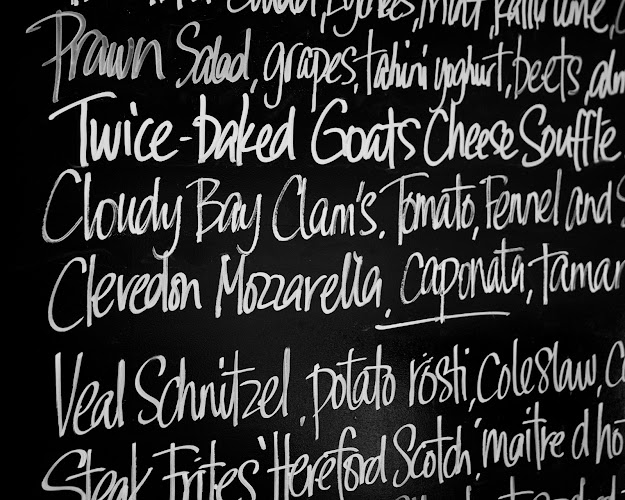 mint, kaffir lime,
Prawn Salad, grapes, tahini yoghurt, beets,
Twice-baked Goats Cheese Soufflé
Cloudy Bay Clam's. Tomato, Fennel and
Clevedon Mozzarella. caponata,
Veal Schnitzel. potato rösti, coleslaw,
Steak Frites 'Hereford Scotch' maitre d